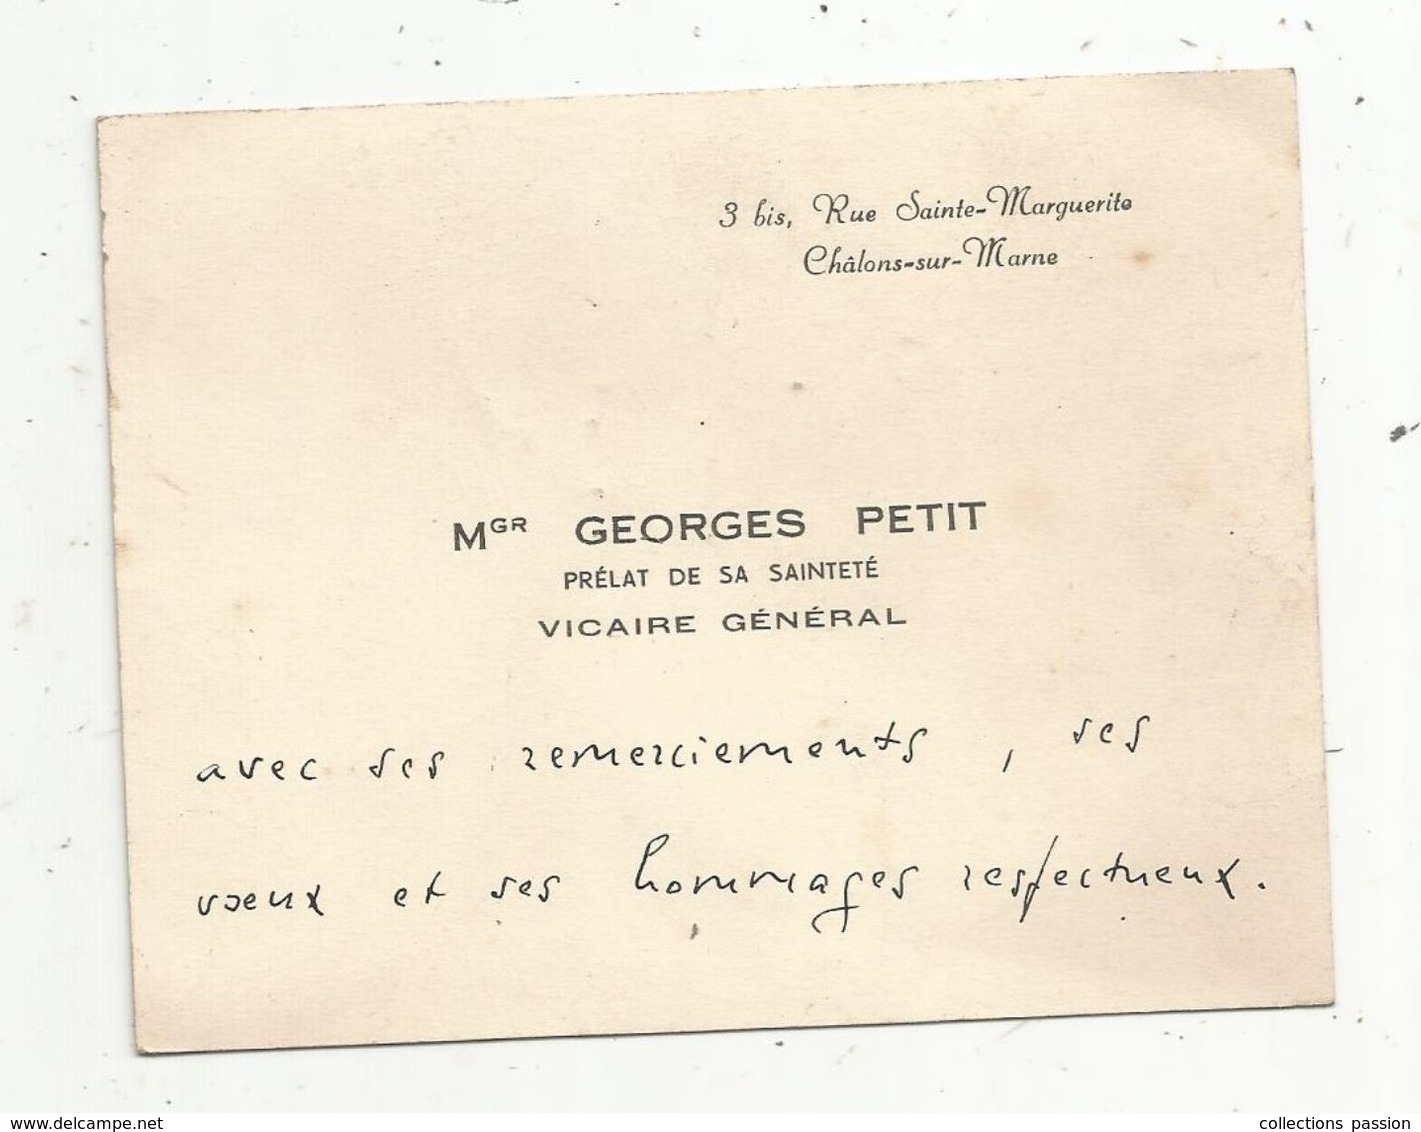 3 bis, Rue Sainte-Marguerite
Châlons-sur-Marne
MGR GEORGES PETIT
PRÉLAT DE SA SAINTETÉ
VICAIRE GÉNÉRAL
avec ses remerciements, ses
vœux et ses hommages respectueux.
www.delcampe.net
collections passion